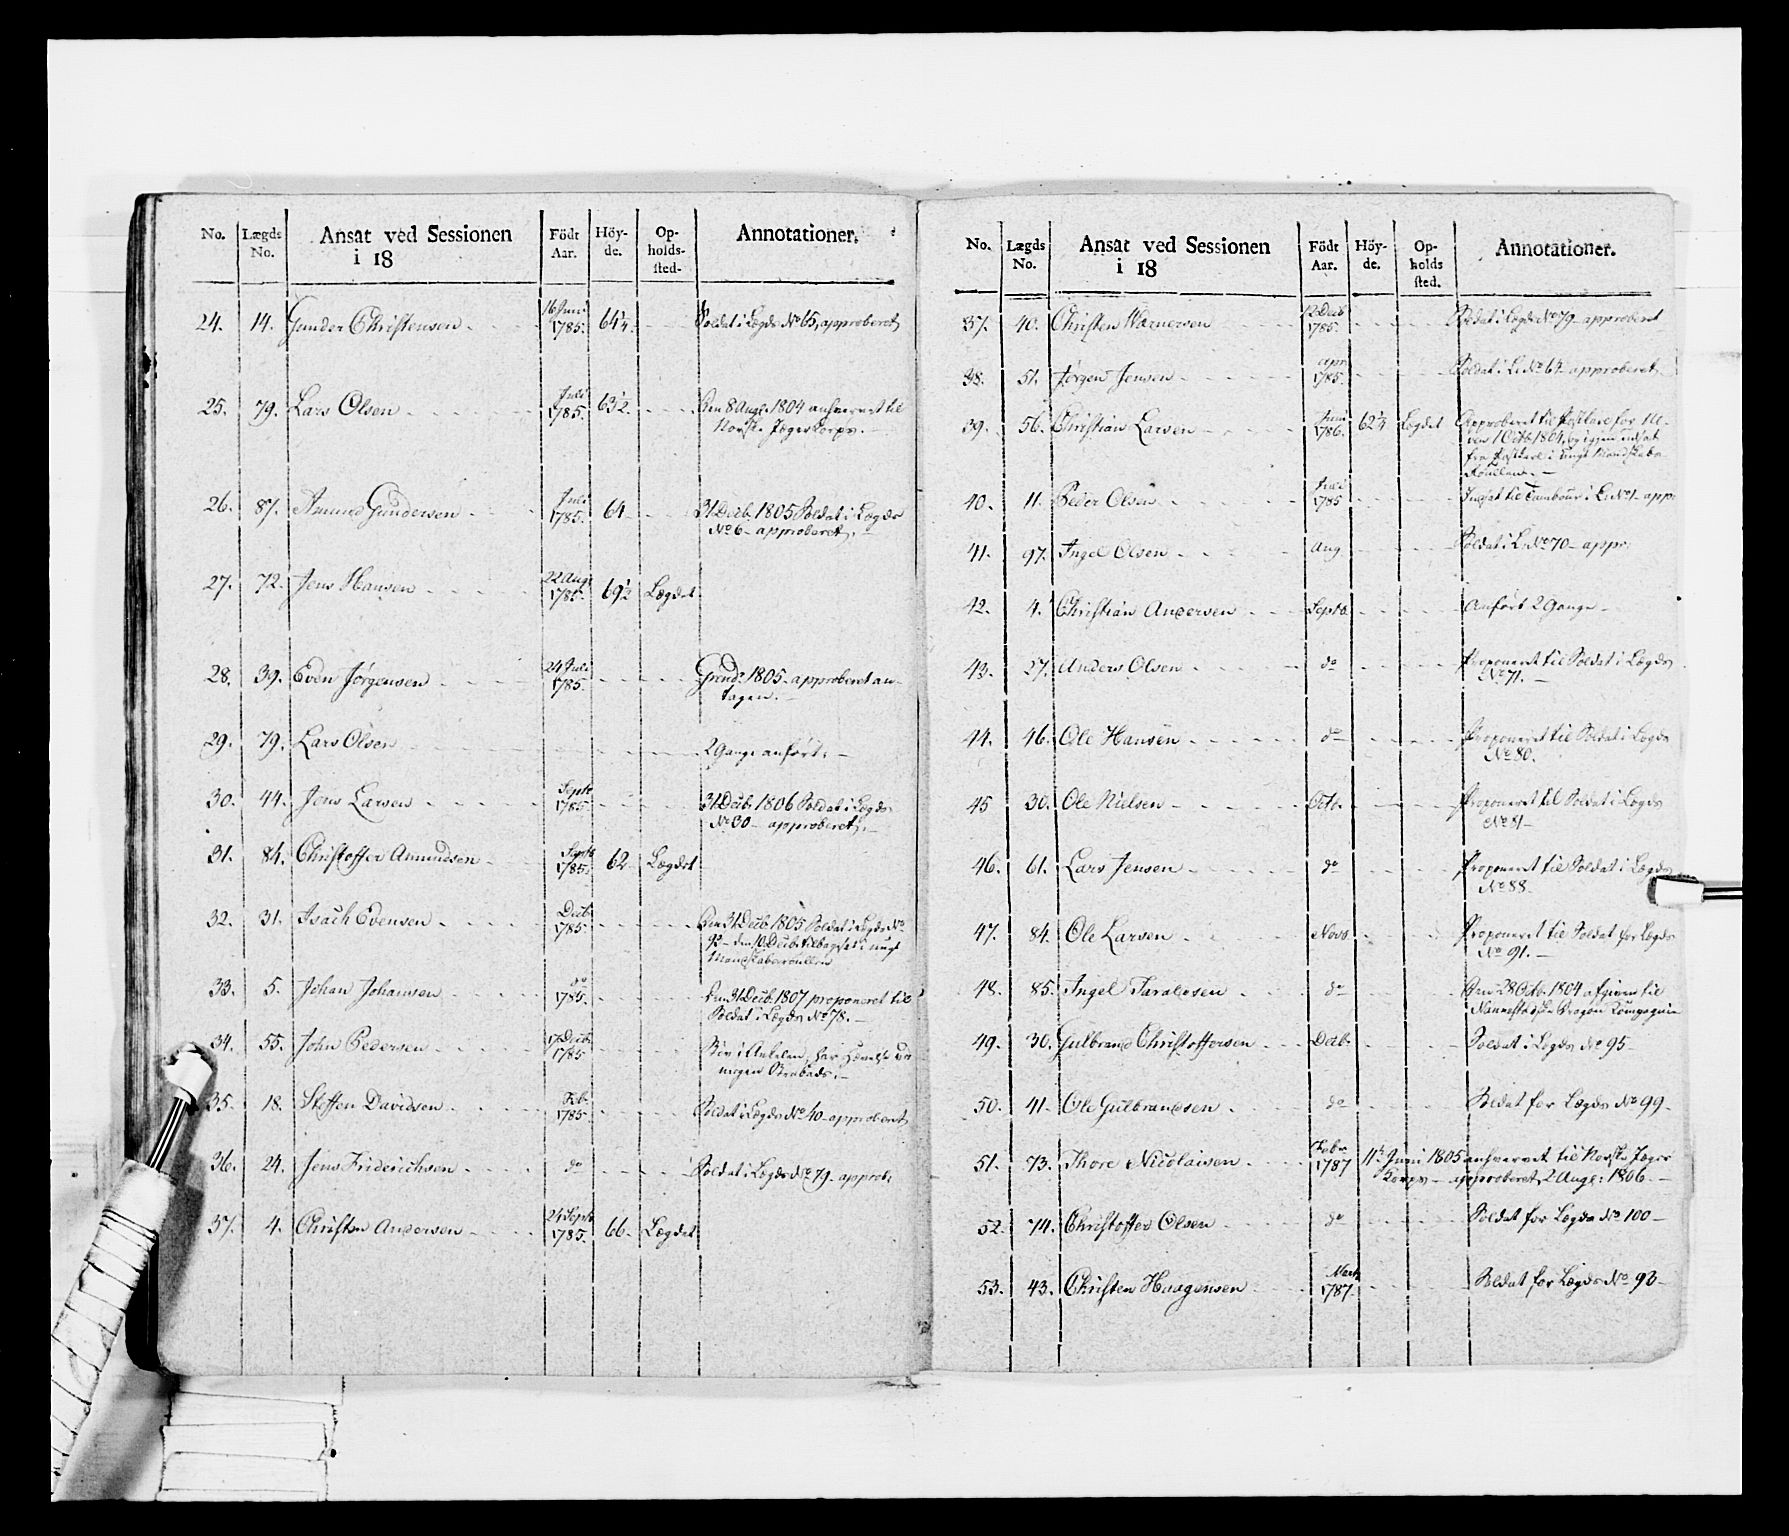 No. Lægds No. Ansat ved Sessionen i 18 Födt Aar. Höyde. Opholdssted. Annotationer.
24. 14. Gunder Christensen 16 Juni 1785. 64¼ Soldat i Lægds No 65, approberet
25. 79. Lars Olsen Juli 1785. 63½ Den 8 Augt. 1804 anhvervet til
Norske Jæger Korps.
26. 87. Amund Gundersen Juli 1785. 64 31 Decb. 1805 Soldat i Lægds
No 6 approberet.
27. 72. Jens Hansen 22 Aug. 1785. 69½ Lægdet
28. 39. Even Jørgensen 24 Juli 1785. 1805 approberet an-
tagen.
29. 79. Lars Olsen 2 Gange anført.
30. 44. Jens Larsen Septb. 1785. 31 Decb. 1806 Soldat i Lægds
No 30 approberet.
31. 84. Christoffer Amundsen Septb. 1785. 62 Lægdet
32. 31. Isach Evensen Decb. 1785. Den 31 Decb. 1805 Soldat i Lægds No
92 den 10 Decb. tilbagesat i ungt
Mandskabsroullen
33. 5. Johan Johansen do 1785. den 31 Decb. 1807 proponeret til
Soldat i Lægds No 78.
34. 55. John Pedersen 17 Decb. 1785 i Ankelen, har
35. 18. Steffen Davidsen Feb. 1785. Soldat i Lægds No 40 approberet
36. 24. Jens Friderichsen do Soldat i Lægds No 79 approb:
37. 4. Christen Andersen 24 Septb. 1785. 66. Lægdet
No. Lægds No. Ansat ved Sessionen i 18 Födt Aar. Höyde. Opholds sted. Annotationer.
37. 40. Christen Warnersen 12 Decb 1785. Soldat i Lægds No 79 approberet
38. 51. Jørgen Jensen apr. 1785. Soldat i L. No 64 approberet
39. 56. Christian Larsen Juni 1786. 62¼ Lægdet Approberet til
den 1 Octb. 1804, og igjen udsat
fra i ungt Mandskabs-
Roullen.
40. 11. Peder Olsen Juli 1785 Indsat til Tambour i L. No 1 app:
41. 97. Ingel Olsen Aug. Soldat i L. No 70 appr:
42. 4. Christian Andersen Septb. Anført 2 Gange
43. 27. Anders Olsen do Proponeret til Soldat i Lægds
No 71.
44. 46. Ole Hansen do Proponeret til Soldat i Lægds
No 80.
45 30. Ole Nielsen Octb. Proponeret til Soldat i Lægds
No 81
46. 61. Lars Jensen do Proponeret til Soldat i Lægds
No 88
47. 84. Ole Larsen Novb. Proponeret til Soldat for Lægds
No 91.
48. 85. Ingel Taraldsen do Den 28 Octb. 1804 afgiven til
Dragon Kompagnie
49. 30. Gulbrand Christoffersen Decb. Soldat i Lægds No 95
50. 41. Ole Gulbrandsen do Soldat for Lægds No 99
51. 73. Thore Nicolaisen Febr. 1787 11te Juni 1805 anhvervet til Norske Jæger
Korps approberet 2 Augt: 1806.
52. 74. Christoffer Olsen do Soldat for Lægds No 100
53. 43. Christen Haagensen Marts 1787. Soldat for Lægds No 93